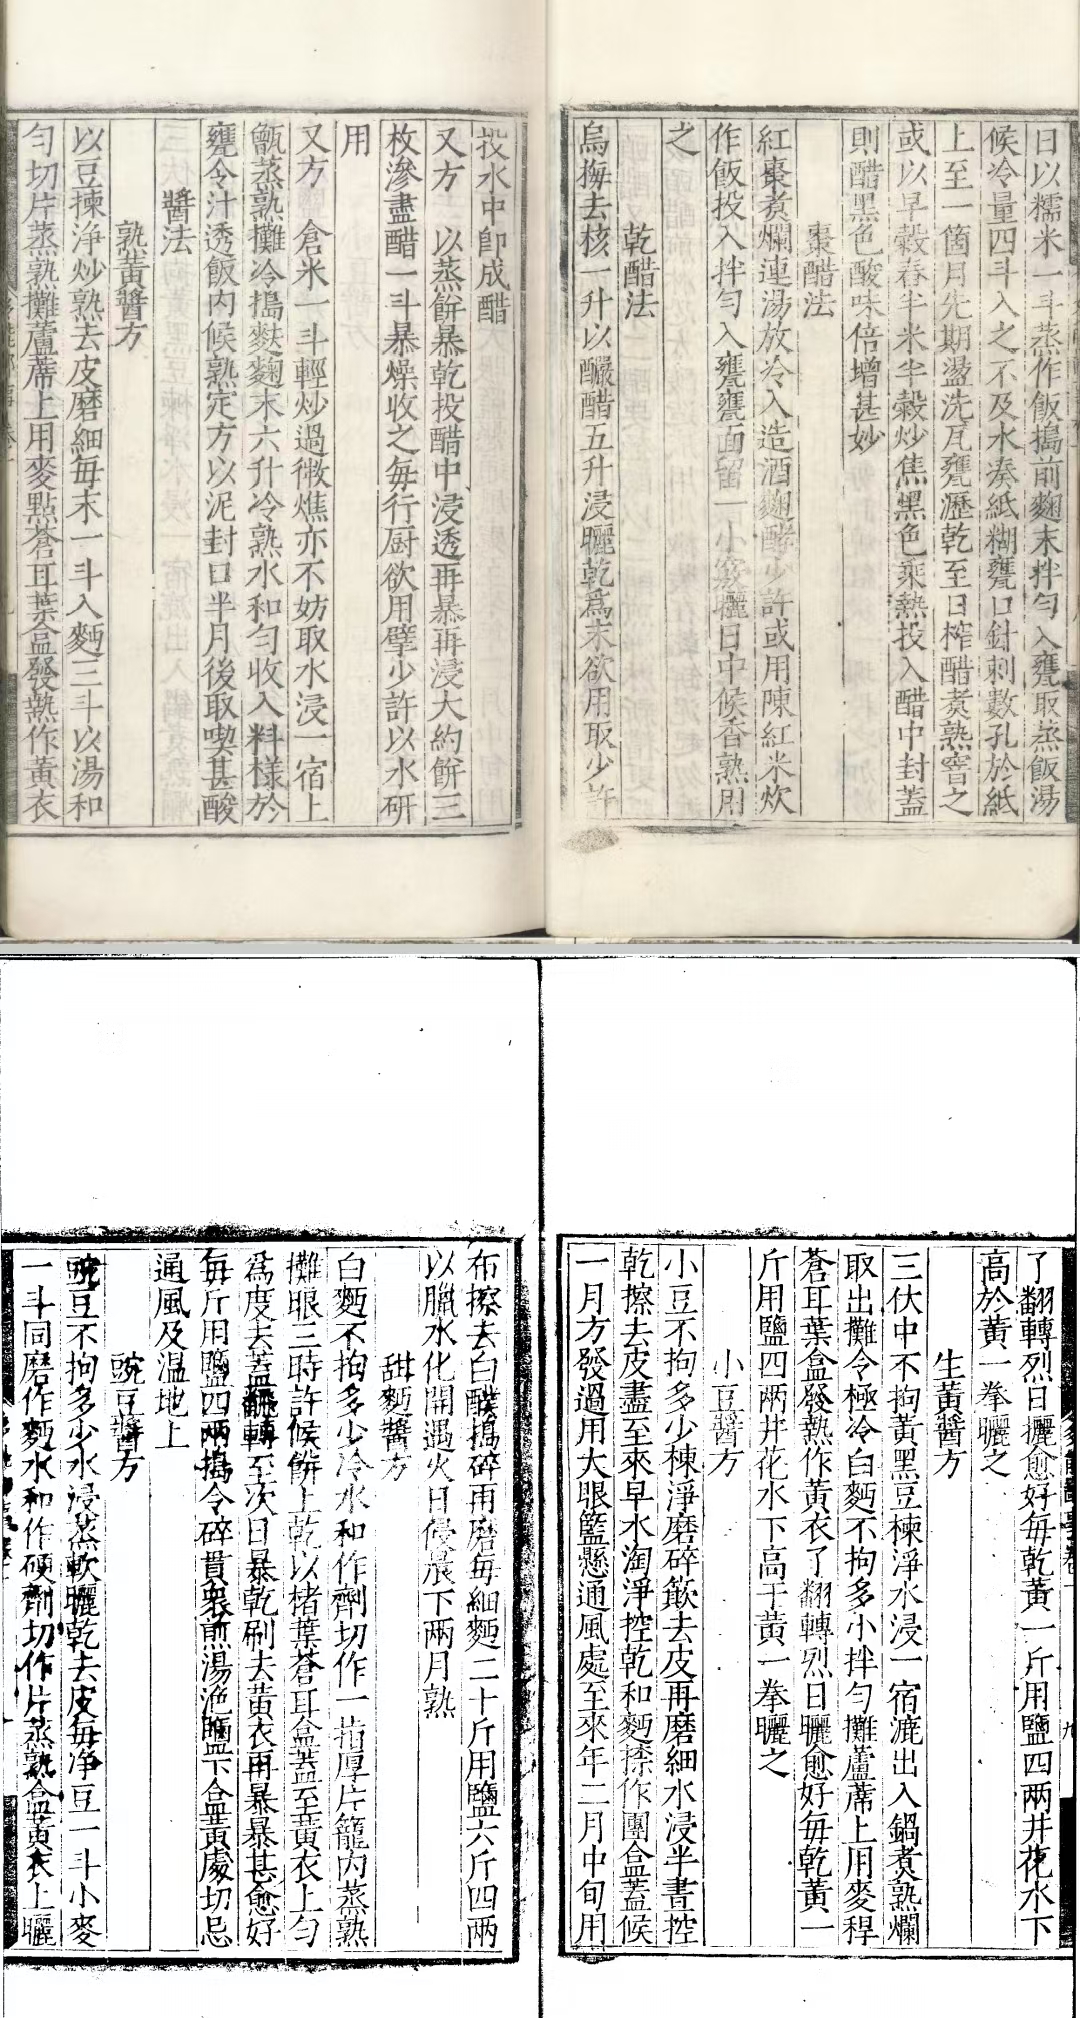 日以糯米一斗蒸作飯搗前麴末拌勻入甕取蒸飯湯
候冷量四斗入之不及水湊紙糊甕口針刺數孔於紙
上至一箇月先期盪洗瓦甕瀝乾至日榨醋煑熟窨之
或以早穀舂半米半穀炒焦黑色乘熱投入醋中封蓋
則醋黑色酸味倍增甚妙
棗醋法
紅棗煑爛連湯放冷入造酒麴酵少許或用陳紅米炊
作飯投入拌勻入甕甕面留一小竅曬日中候香熟用
之
乾醋法
烏梅去核一升以釅醋五升浸曬乾爲末欲用取少許
投水中卽成醋
又方 以蒸餅暴乾投醋中浸透再暴再浸大約餅三
枚滲盡醋一斗暴燥收之每行厨欲用擘少許以水研
用
又方 倉米一斗輕炒過微燋亦不妨取水浸一宿上
甑蒸熟攤冷搗麩麴末六升冷熟水和勻收入料樣於
甕令汁透飯內候熟定方以泥封口半月後取喫甚酸
醬法
熟黃醬方
以豆揀浄炒熟去皮磨細每末一斗入麪三斗以湯和
勻切片蒸熟攤蘆蓆上用麥䴬蒼耳葉盒發熟作黃衣
了翻轉烈日曬愈好每乾黃一斤用鹽四兩井花水下
高於黃一拳曬之
生黃醬方
三伏中不拘黃黑豆楝淨水浸一宿漉出入鍋煑熟爛
取出攤令極冷白麪不拘多小拌勻攤蘆蓆上用麥稈
蒼耳葉盒發熟作黃衣了翻轉烈日曬愈好每乾黃一
斤用鹽四兩井花水下高于黃一拳曬之
小豆醬方
小豆不拘多少楝淨磨碎簸去皮再磨細水浸半晝控
乾擦去皮盡至來早水淘淨控乾和麪捺作團盒蓋候
一月方發過用大眼籃懸通風處至來年二月中旬用
布擦去白醭搗碎再磨每細麪二十斤用鹽六斤四兩
以臘水化開遇火日侵晨下兩月熟
甜麪醬方
白麪不拘多少冷水和作劑切作一指厚片籠內蒸熟
攤眼三時許候餅上乾以楮葉蒼耳盒蓋至黃衣上勻
爲度去蓋翻轉至次日暴乾刷去黃衣再暴暴甚愈好
每斤用鹽四兩搗令碎貫衆煎湯淹鹽下盒黃處切忌
通風及温地上
豌豆醬方
豌豆不拘多少水浸蒸軟曬乾去皮每浄豆一斗小麥
一斗同磨作麪水和作硬劑切作片蒸熟盒黃衣上曬